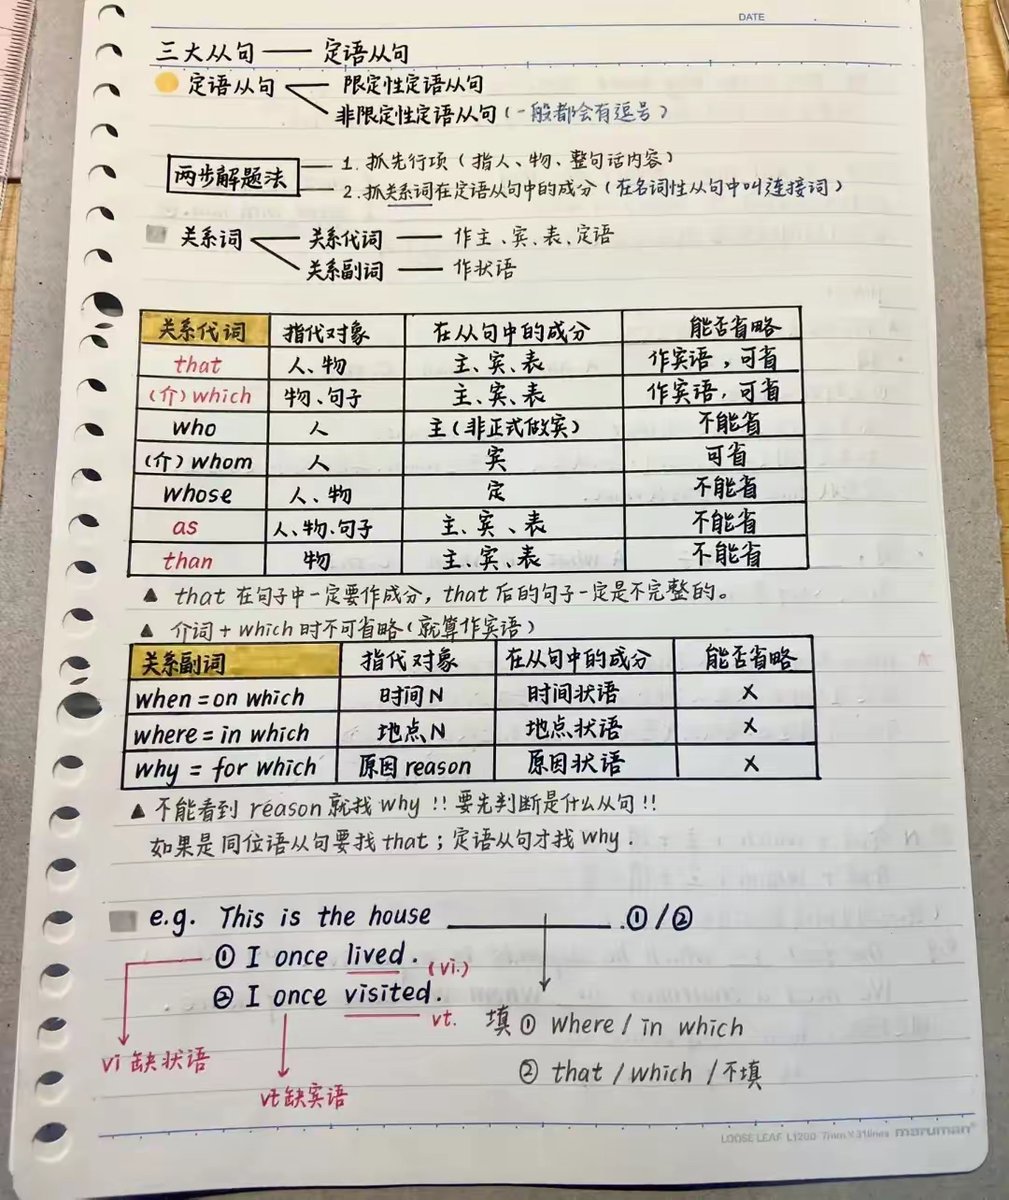 DATE
三大从句 —— 定语从句
定语从句 限定性定语从句
非限定性定语从句(一般都会有逗号)
两步解题法 1. 抓先行项(指人、物、整句话内容)
2. 抓关系词在定语从句中的成分(在名词性从句中叫连接词)
关系词 关系代词 —— 作主、宾、表、定语
关系副词 —— 作状语
关系代词 指代对象 在从句中的成分 能否省略
that 人、物 主、宾、表 作宾语,可省
(介)which 物、句子 主、宾、表 作宾语,可省
who 人 主(非正式做宾) 不能省
(介)whom 人 宾 可省
whose 人、物 定 不能省
as 人、物、句子 主、宾、表 不能省
than 物 主、宾、表 不能省
▲ that 在句子中一定要作成分, that 后的句子一定是不完整的。
▲ 介词 + which 时不可省略(就算作宾语)
关系副词 指代对象 在从句中的成分 能否省略
when = on which 时间N 时间状语 ×
where = in which 地点N 地点状语 ×
why = for which 原因 reason 原因状语 ×
▲ 不能看到 reason 就找 why !! 要先判断是什么从句 !!
如果是同位语从句要找 that ; 定语从句才找 why .
e.g. This is the house ______ . ①/②
① I once lived . (vi.)
② I once visited. vt.
填 ① where / in which
vi 缺状语
② that / which / 不填
vt 缺宾语
LOOSE LEAF L1200 7mm×31lines maruman